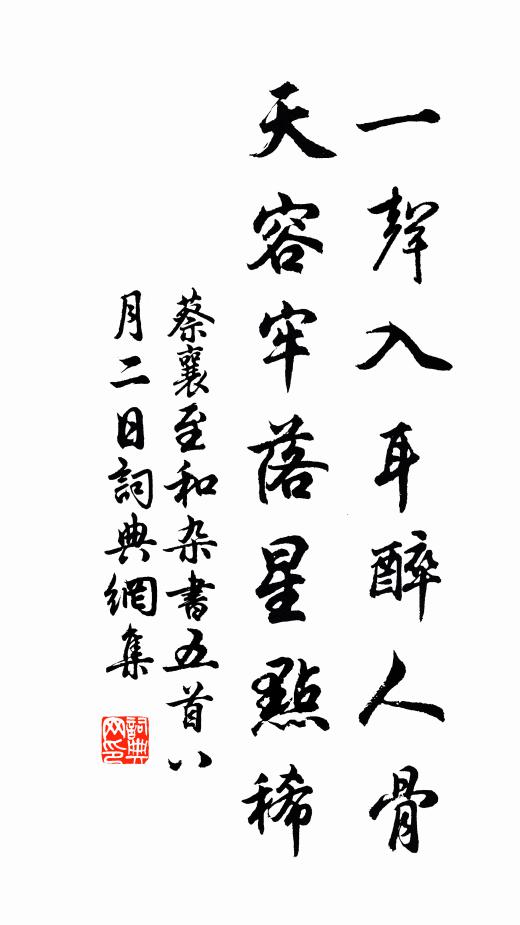 一聲入耳醉人骨
天容牢落星點稀
蔡襄至和杂書五首八
月二日詞典網集
詞典
网印